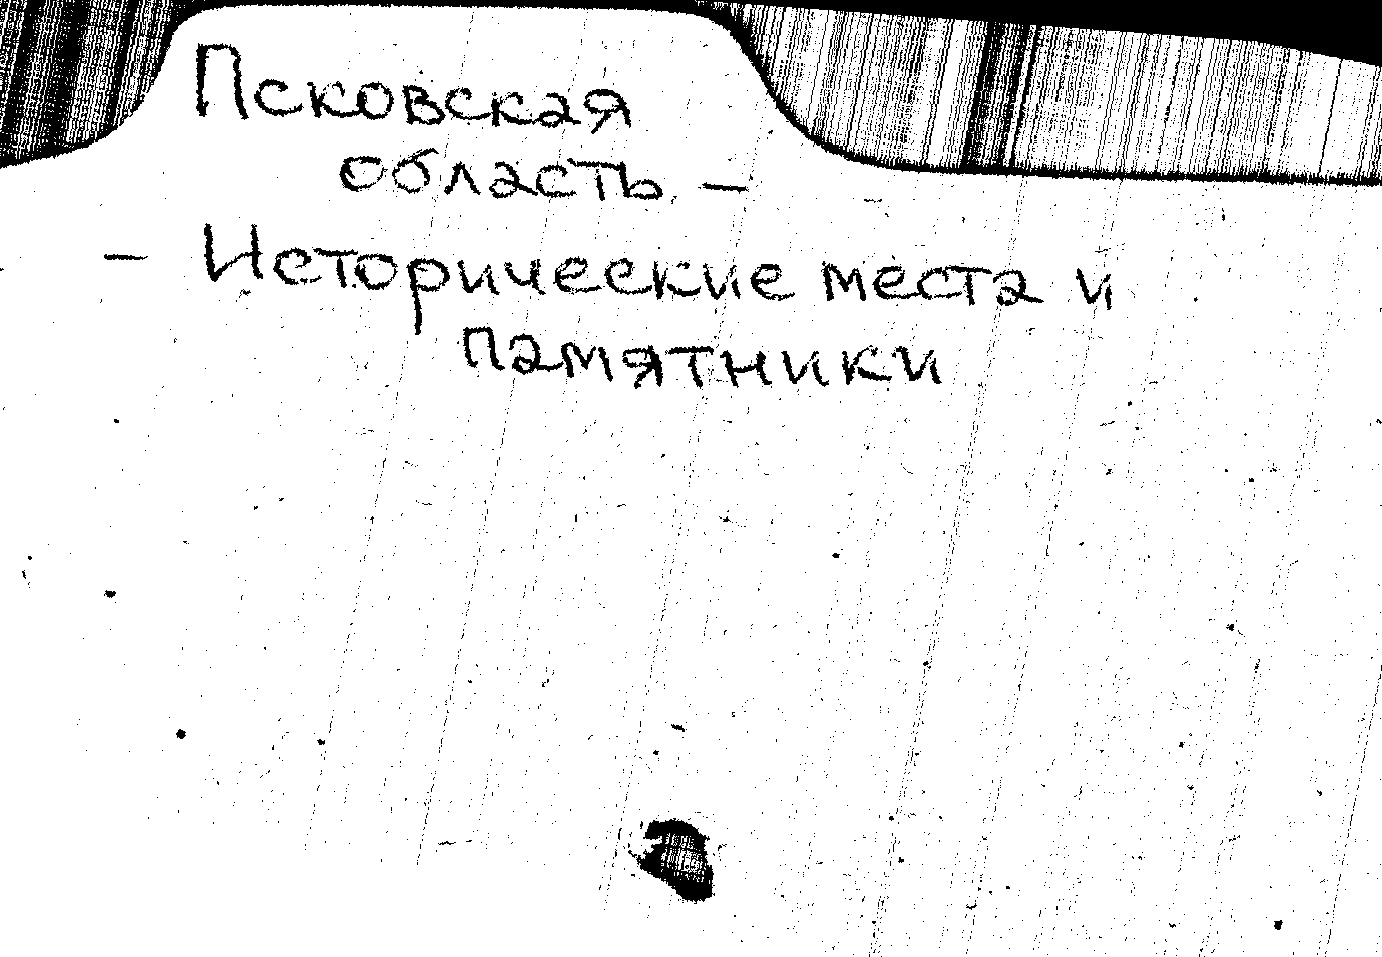 Псковская
область –
– Исторические места и
памятники